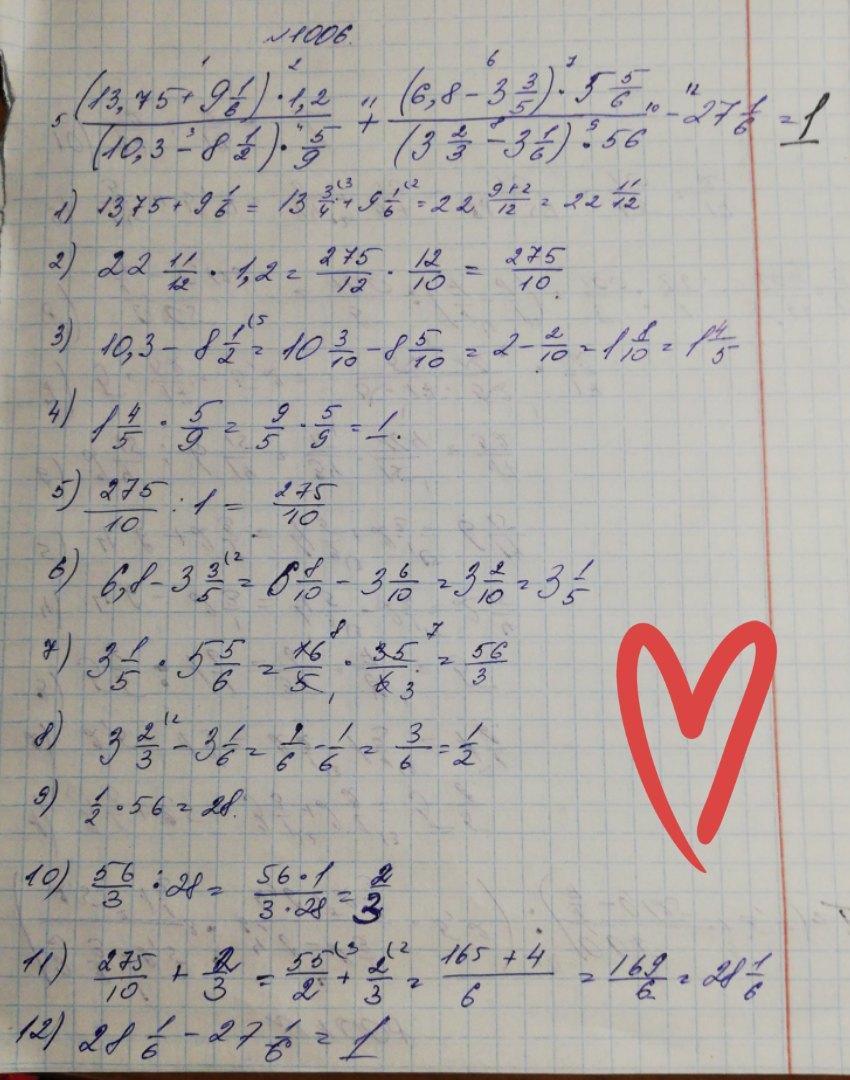 №1006.
5 ((13,75 + 9 1/6) · 1,2) / ((10,3 - 8 1/2) · 5/9) + ((6,8 - 3 3/5) · 5 5/6) / ((3 2/3 - 3 1/6) · 56) - 27 1/6 = 1
1) 13,75 + 9 1/6 = 13 3/4 (3 + 9 1/6 (2 = 22 (9+2)/12 = 22 11/12
2) 22 11/12 · 1,2 = 275/12 · 12/10 = 275/10
3) 10,3 - 8 1/2 (5 = 10 3/10 - 8 5/10 = 2 - 2/10 = 1 8/10 = 1 4/5
4) 1 4/5 · 5/9 = 9/5 · 5/9 = 1.
5) 275/10 : 1 = 275/10
6) 6,8 - 3 3/5 (2 = 6 8/10 - 3 6/10 = 3 2/10 = 3 1/5
7) 3 1/5 · 5 5/6 = 16 8/5 1 · 35 7/6 3 = 56/3
8) 3 2/3 (2 - 3 1/6 = 4/6 - 1/6 = 3/6 = 1/2
9) 1/2 · 56 = 28.
10) 56/3 : 28 = (56·1)/(3·28) = 2/3
11) 275/10 + 2/3 = 55/2 (3 + 2/3 (2 = (165+4)/6 = 169/6 = 28 1/6
12) 28 1/6 - 27 1/6 = 1